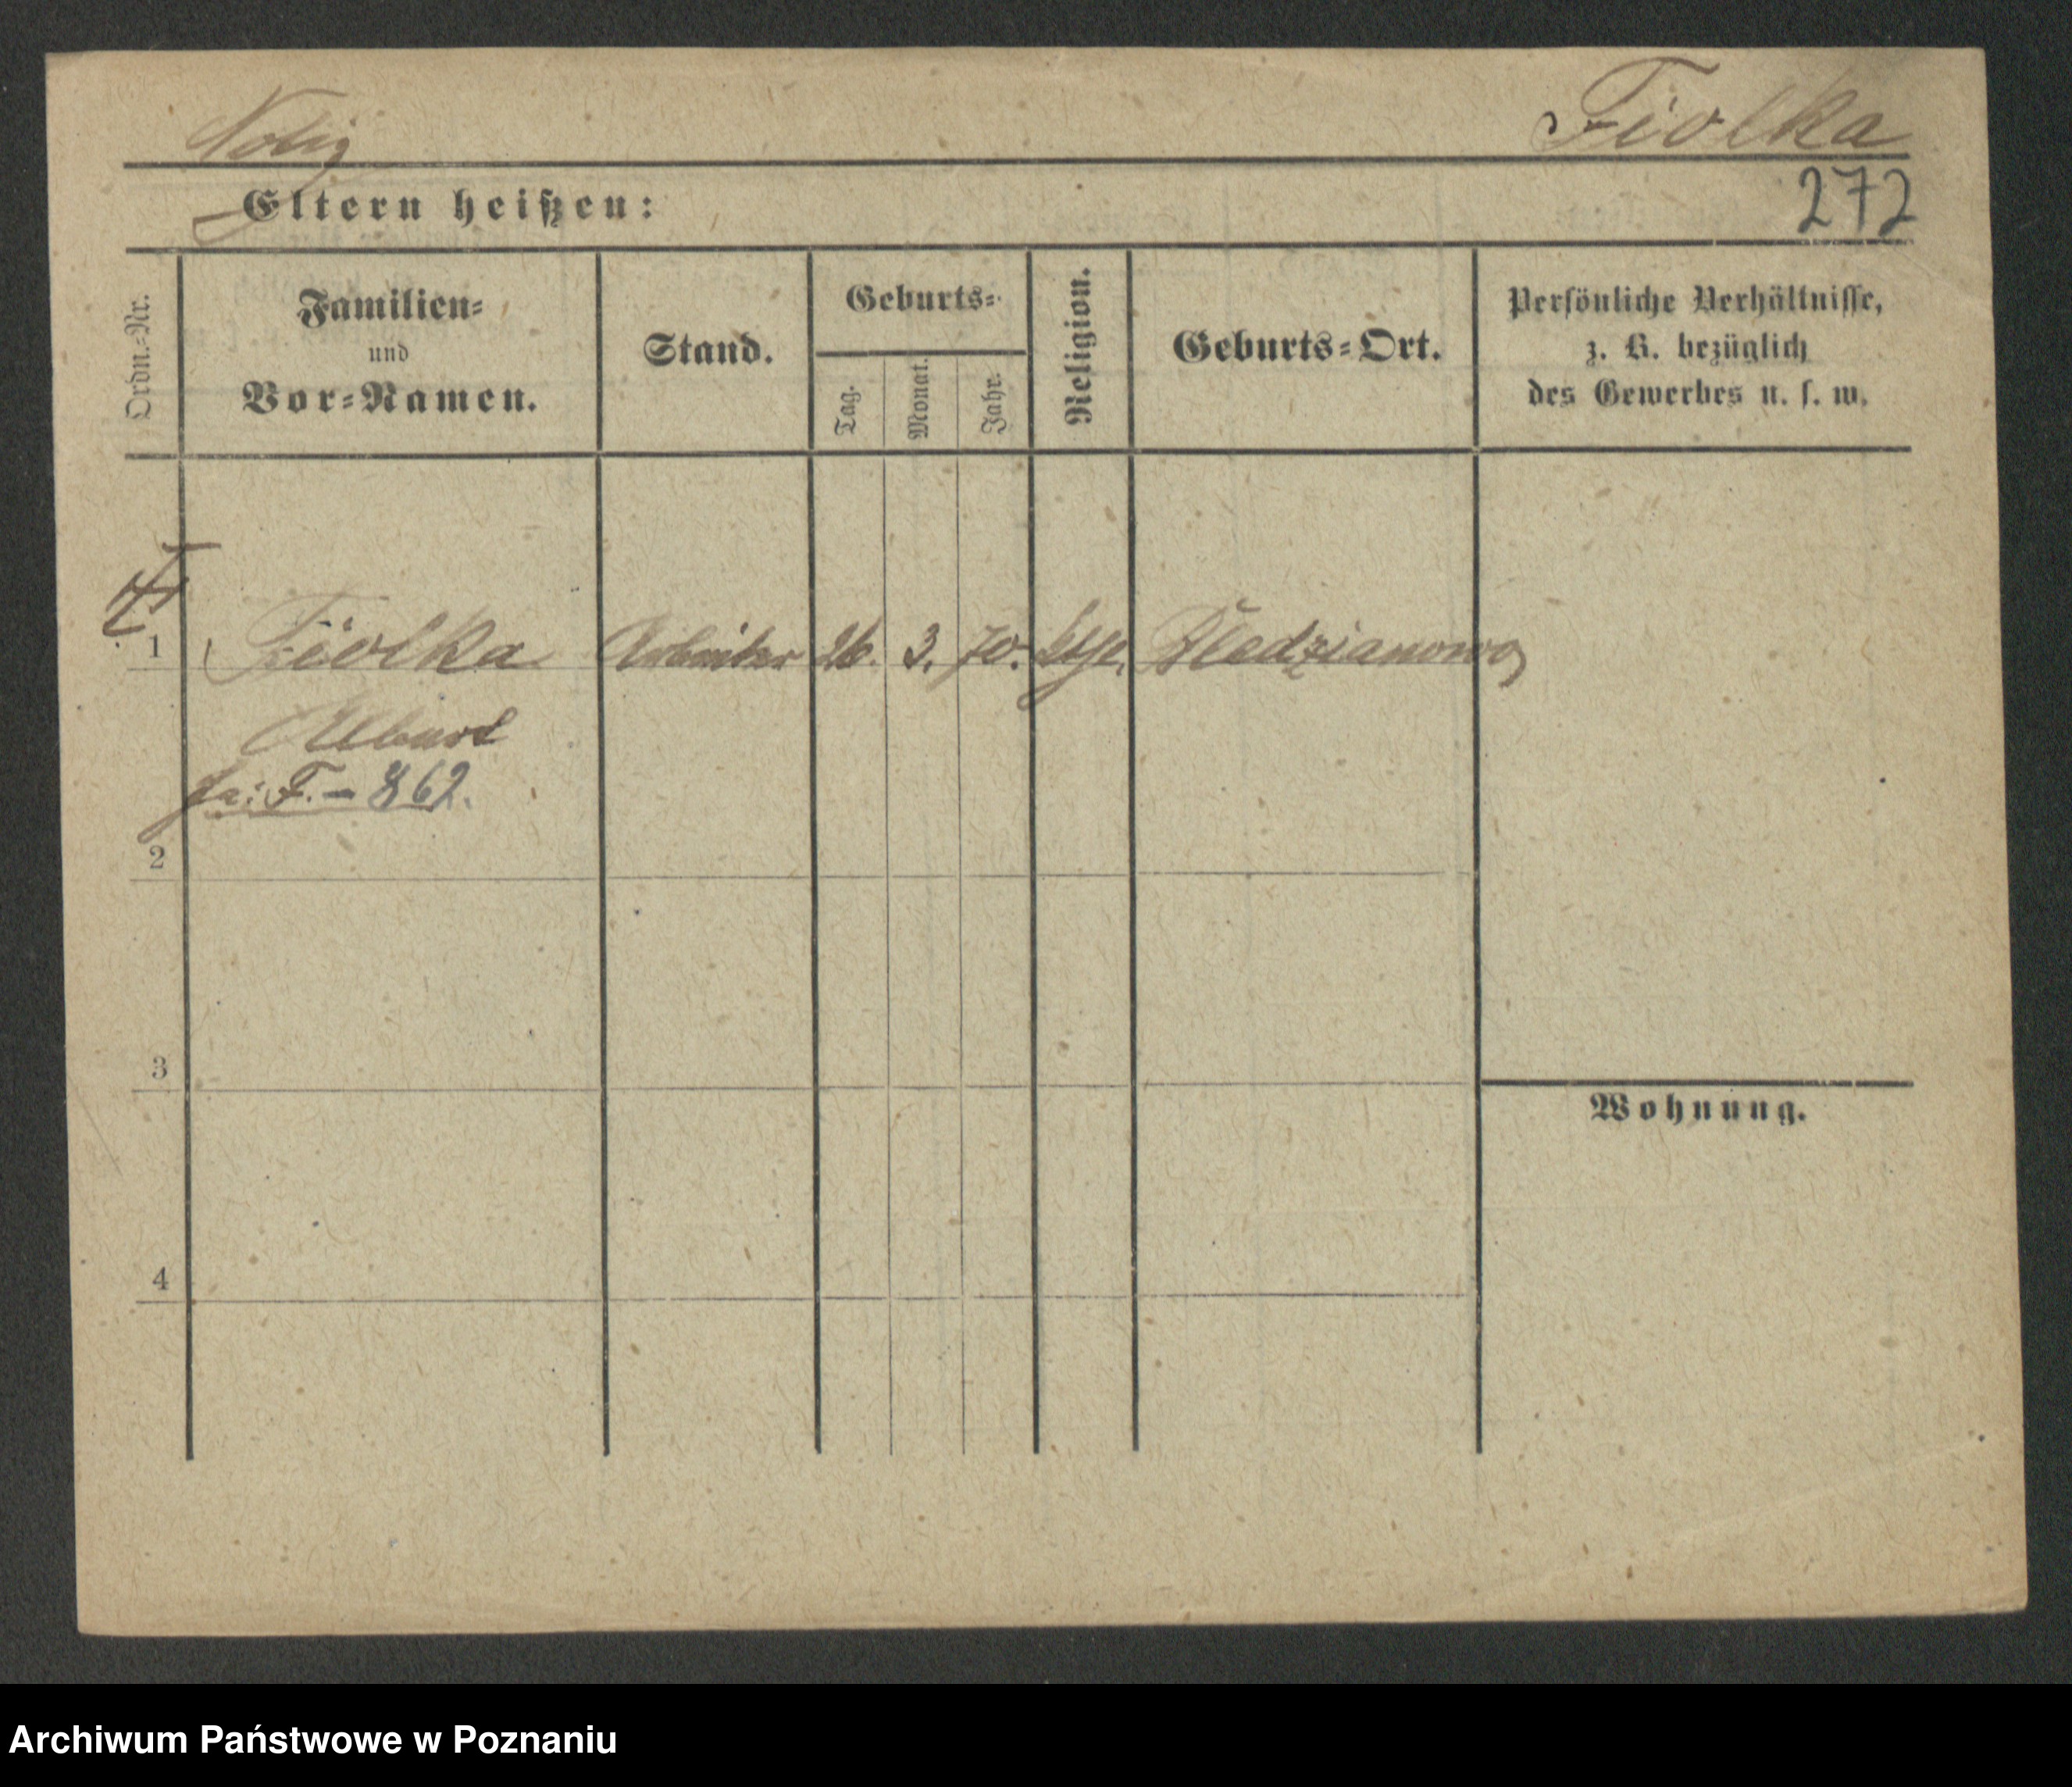 Notiz
Fiolka
272
Eltern heißen:
Ordn.-Nr.
Familien-
und
Vor-Namen.
Stand.
Geburts-
Tag.
Monat.
Jahr.
Religion.
Geburts-Ort.
Persönliche Verhältnisse,
z. B. bezüglich
des Gewerbes u. s. w.
1 Fiolka Arbeiter 26. 3. 70.
Albert
F. - 862.
2
3
4
Wohnung.
Archiwum Państwowe w Poznaniu